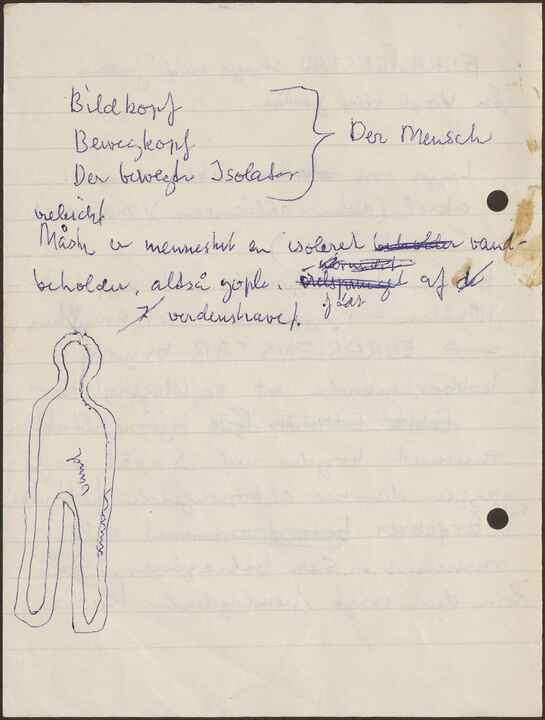 Bildkopf
Bewegkopf
Der bewegte Isolator
Der Mensch
vieleicht
Måske er mennesket en isoleret beholder vand-
beholder, altså gople. af
verdenshavet.
vand